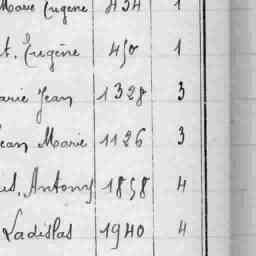 Marie Eugène 434 1
t. Eugène 450 1
arie Jean 1328 3
ean Marie 1126 3
Antony 1858 4
Ladislas 1940 4